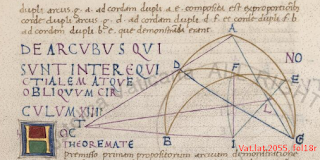 dupli arcus. g. a. ad cordam dupli. a. e. composita est ex proportione
corde dupli arcus. g. d. ad cordam dupli. d. f. et corde dupli. f. b
ad cordam dupli. b. e. que demonstrari erant.
DE ARCVBVS QVI
SVNT INTER EQVI
CTIALEM ATQVE
OBLIQVVM CIR
CVLVM XIIII
HOC
THEOREMATE
premisso primam propositorum arcuum demonstratione
A
D
F
NO
E
L
B
I
G
Vat.lat.2055.fol18r